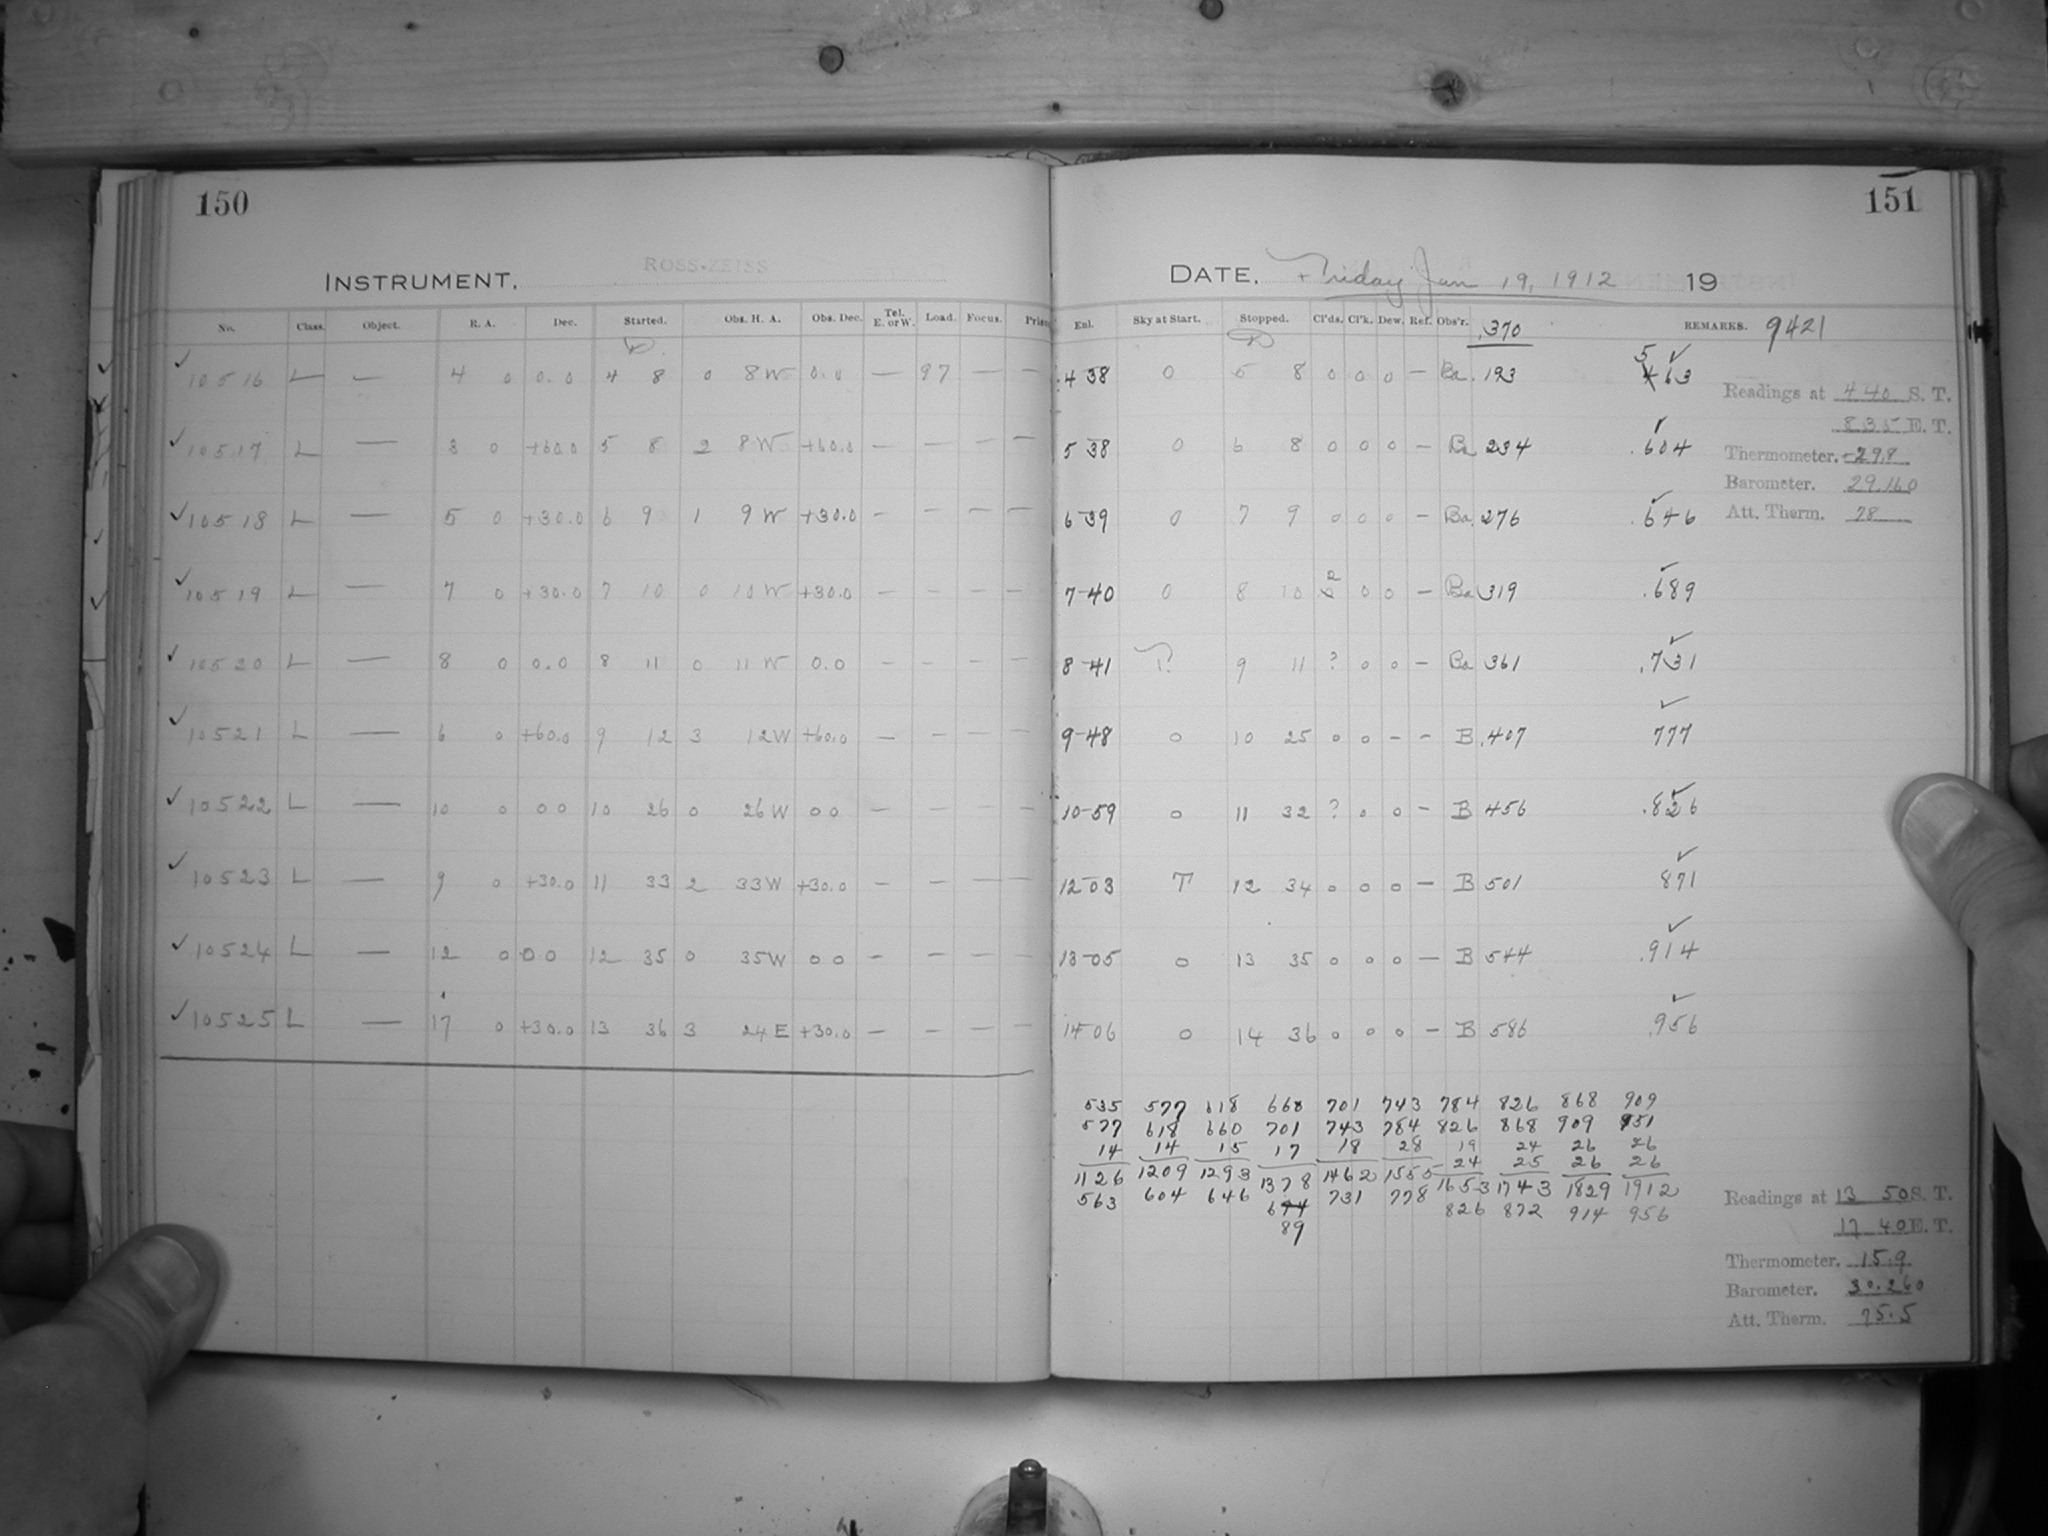 150
INSTRUMENT. ROSS-ZEISS
No. Class. Object. R. A. Dec. Started. Obs. H. A. Obs. Dec. Tel. E. or W. Load. Focus.
10516 L — 4 0 0.0 4 8 0 8W 0.0 — 97 — —
10517 L — 3 0 +60.0 5 8 2 8W +60.0 — — — —
10518 L — 5 0 +30.0 6 9 1 9W +30.0 — — — —
10519 L — 7 0 +30.0 7 10 0 10W +30.0 — — — —
10520 L — 8 0 0.0 8 11 0 11W 0.0 — — — —
10521 L — 6 0 +60.0 9 12 3 12W +60.0 — — — —
10522 L — 10 0 00 10 26 0 26W 00 — — — —
10523 L — 9 0 +30.0 11 33 2 33W +30.0 — — — —
10524 L — 12 0 00 12 35 0 35W 00 — — — —
10525 L — 17 0 +30.0 13 36 3 24E +30.0 — — — —
151
DATE. Friday Jan 19, 1912 19
Enl. Sky at Start. Stopped. Cl'ds. Cl'k. Dew. Ref. Obs'r. .370 REMARKS. 9421
4 38 0 5 8 0 0 0 — Ba .193 563
5 38 0 6 8 0 0 0 — Ba 234 .604
6-39 0 7 9 0 0 0 — Ba 276 .646
7-40 0 8 10 2 0 0 — Ba 319 .689
8-41 ? 9 11 ? 0 0 — Ba 361 .731
9-48 0 10 25 0 0 - - B .407 777
10-59 0 11 32 ? 0 0 — B 456 .826
12-03 T 12 34 0 0 0 — B 501 871
13-05 0 13 35 0 0 0 — B 544 .914
14-06 0 14 36 0 0 0 — B 586 .956
Readings at 4 40 S. T.
8 35 E. T.
Thermometer. +29.8
Barometer. 29.160
Att. Therm. 78
535 577 618 660 701 743 784 826 868 909
577 618 660 701 743 784 826 868 909 951
14 14 15 17 18 28 19 24 26 26
24 25 26 26
1126 1209 1293 1378 1462 1555 1653 1743 1829 1912
563 604 646 694 731 778 826 872 914 956
89
Readings at 13 50 S. T.
17 40 E. T.
Thermometer. 15.9
Barometer. 30.260
Att. Therm. 75.5